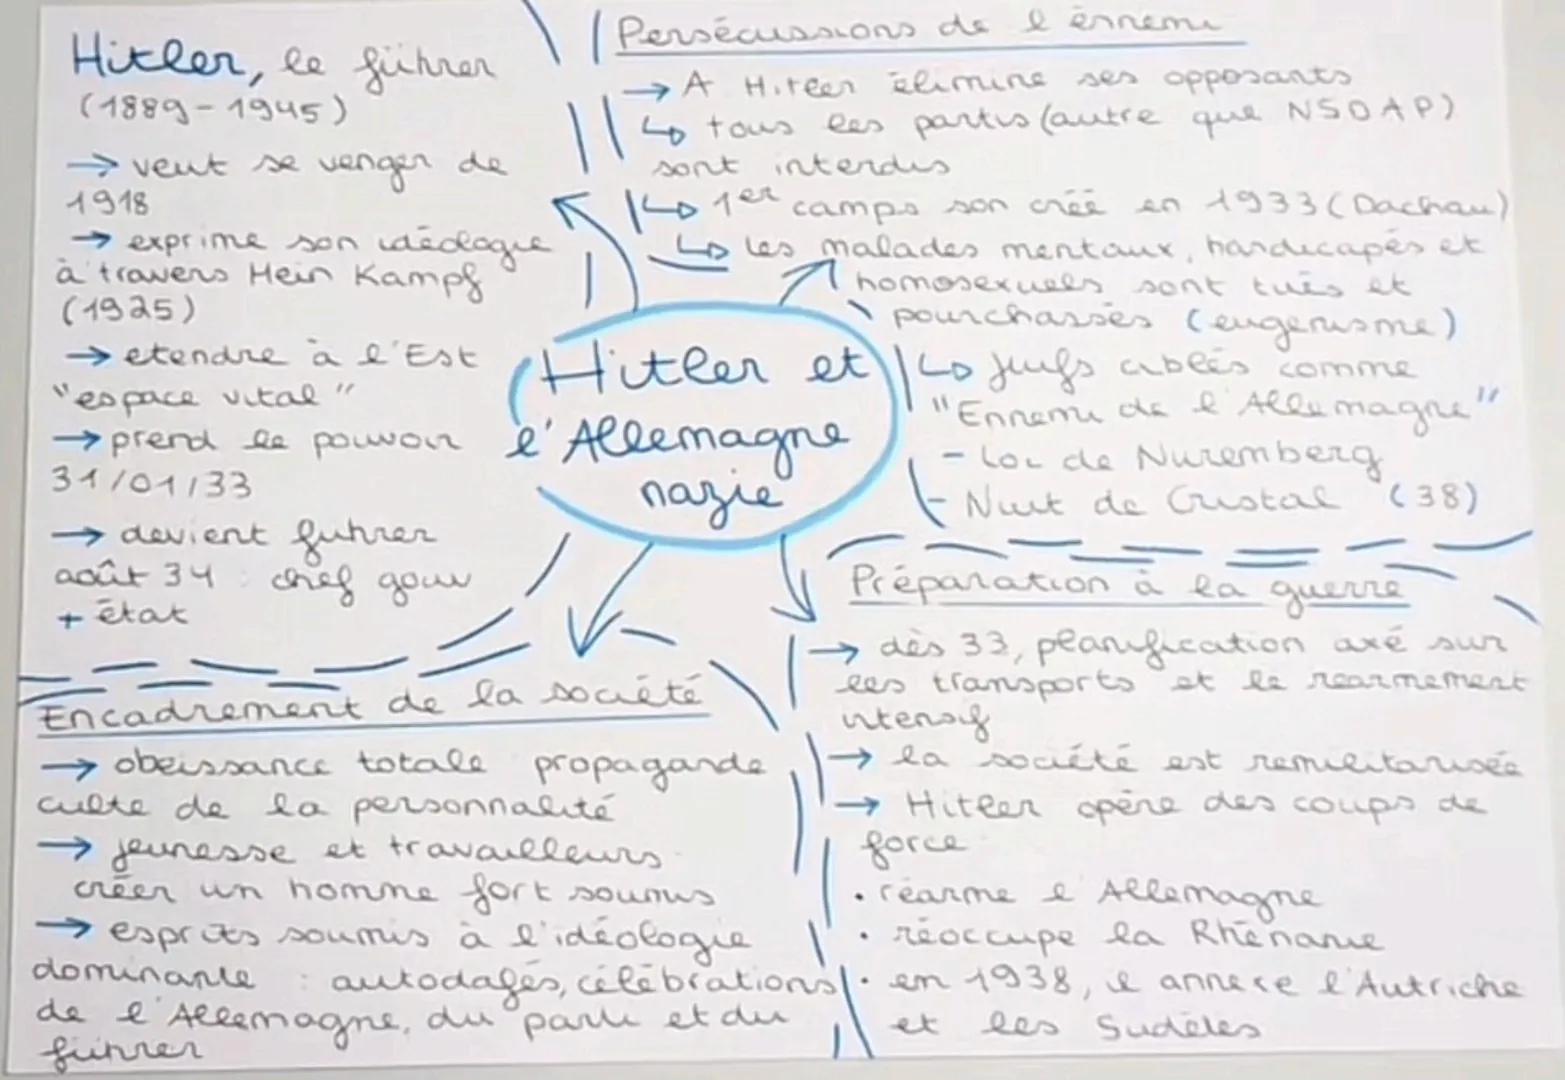 Hitler, le führer
(1889-1945)
→ veut se venger de
1918
→ exprime son idéologie
à travers Mein Kampf
(1925)
→ etendre à l'Est
"espace vital"
→ prend le pouvoir
31/01/33
→ devient fuhrer
août 34 : chef gouv
+ état
Persécussions de l'énnemi
→ A Hitler élimine ses opposants
↳ tous les partis (autre que NSDAP)
sont interdis
↳ 1er camps son créé en 1933 (Dachau)
↳ les malades mentaux, handicapés et
homosexuels sont tués et
pourchassés (eugenisme)
↳ juifs ciblés comme
"Ennemi de l'Allemagne"
- Loi de Nuremberg
- Nuit de Cristal (38)
Hitler et
l'Allemagne
nazie
Encadrement de la société
→ obeissance totale propagande
culte de la personnalité
→ jeunesse et travailleurs
créer un homme fort soumis
→ esprits soumis à l'idéologie
dominante : autodafés, célébrations
de l'Allemagne, du parti et du
führer
Préparation à la guerre
→ dès 33, planification axé sur
les transports et le rearmement
intensif
→ la société est remilitarisée
→ Hitler opère des coups de
force
• réarme l'Allemagne
• réoccupe la Rhénanie
• en 1938, il annexe l'Autriche
et les Sudètes